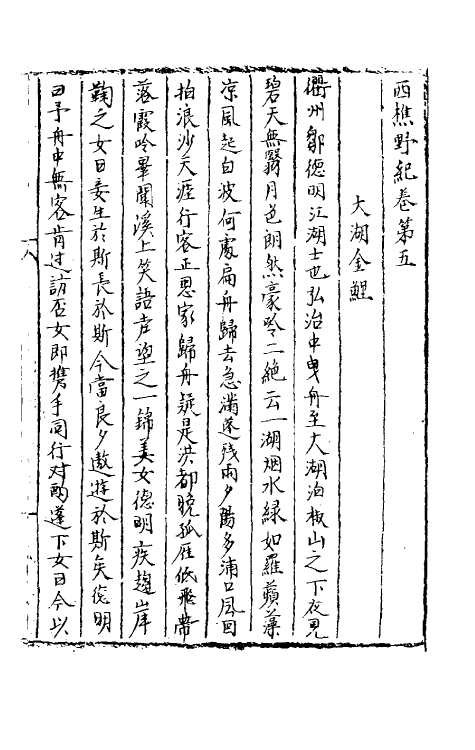 西樵野紀卷第五
大湖金鯉
衢州鄒德明江湖士也弘治中曳舟至大湖泊椒山之下夜見
碧天無翳月色朗然豪吟二絶云一湖烟水緑如羅蘋藻
凉風起白波何處扁舟歸去急滿逢殘雨夕陽多浦口風回
拍浪沙天涯行客正思家歸舟疑是洪都晚孤鴈低飛帶
落霞吟畢聞溪上笑語声望之一錦美女德明疾趨岸
鞠之女曰妾生於斯長於斯今當良夕遨遊於斯矣德明
曰予舟中無客肯过訪否女即携手同行对酌蓬下女曰今以